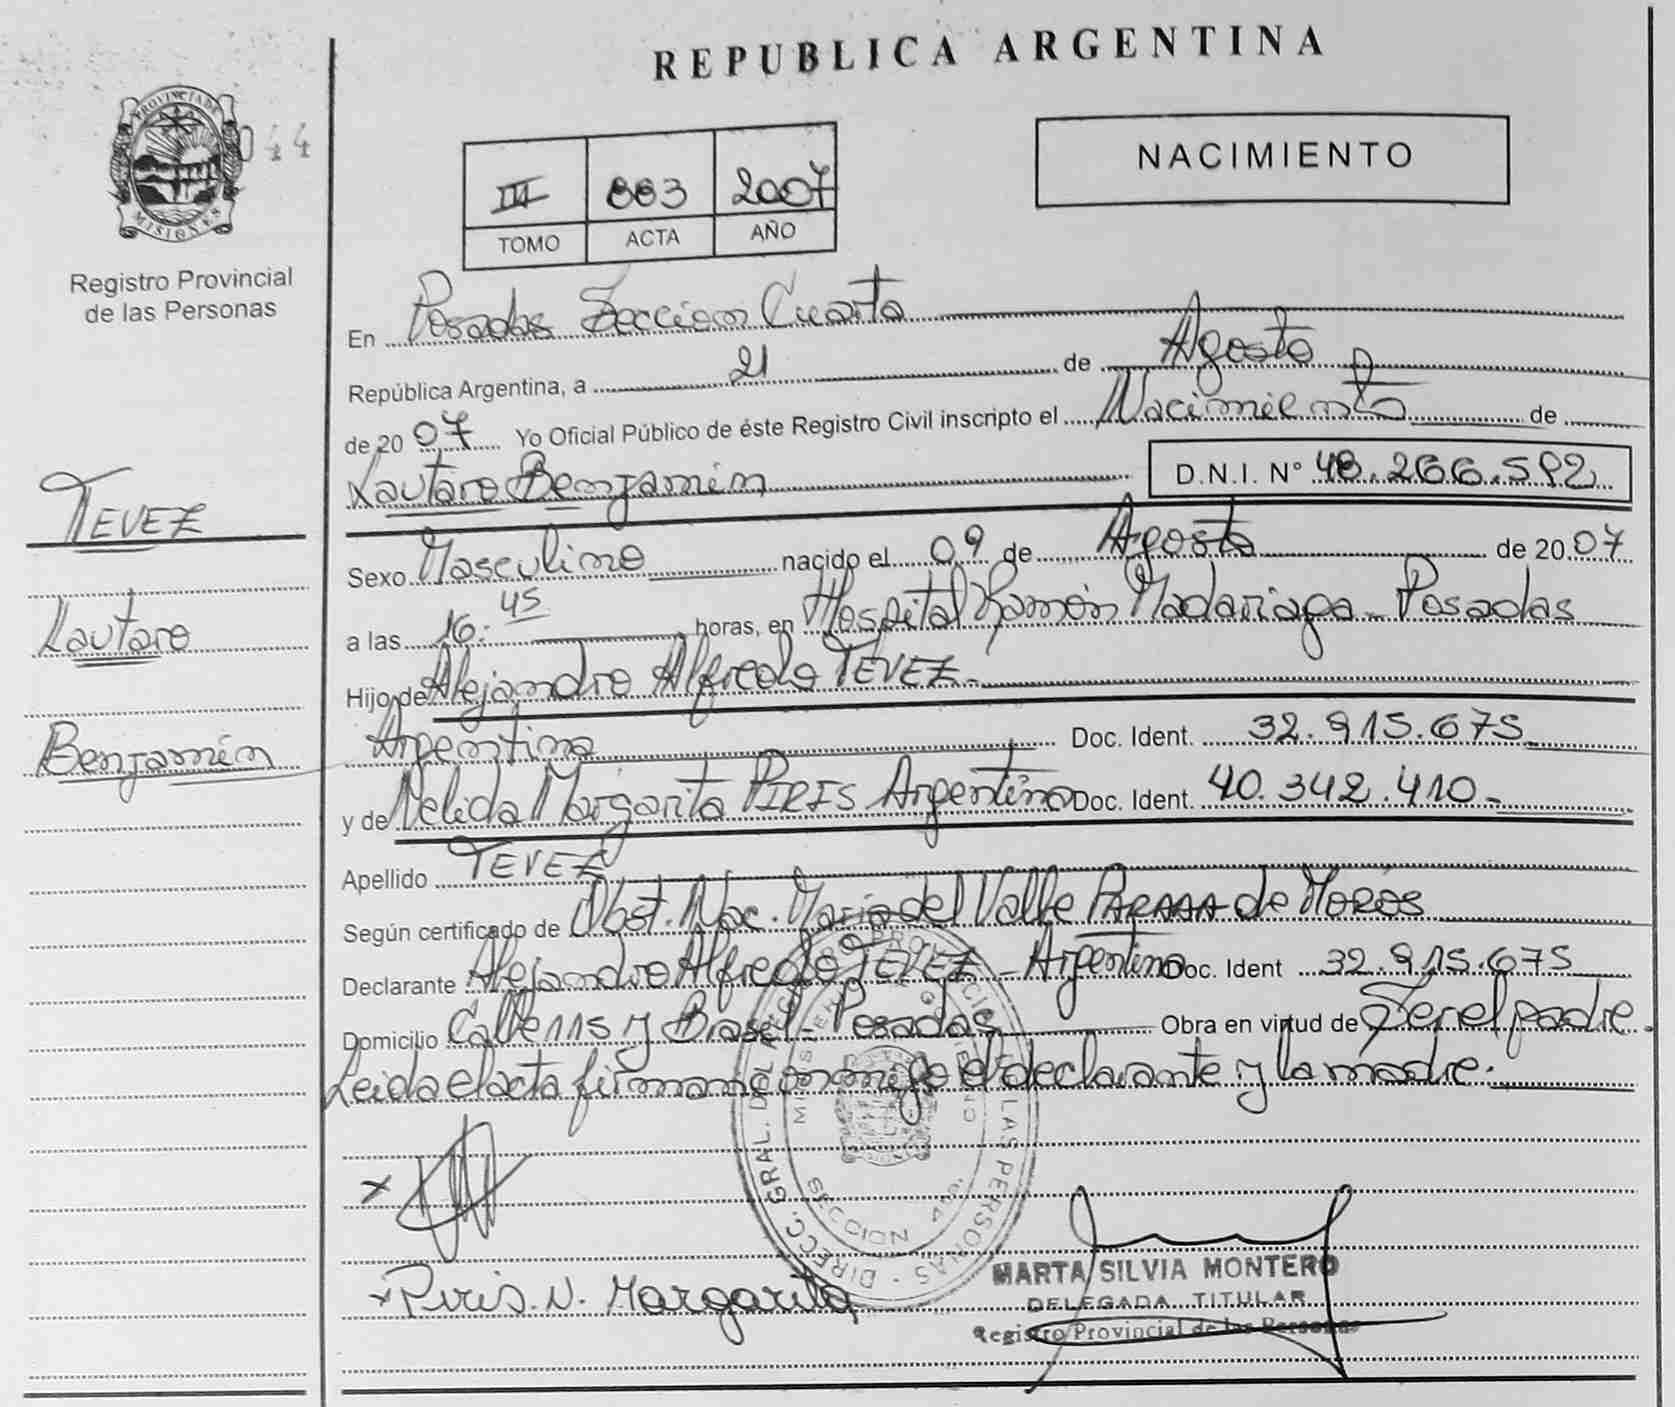 REPUBLICA ARGENTINA
PROVINCIA DE
MISIONES
044
Registro Provincial
de las Personas
III 883 2007
TOMO ACTA AÑO
NACIMIENTO
En Posadas Seccion Cuarta
República Argentina, a 21 de Agosto
de 2007 Yo Oficial Público de éste Registro Civil inscripto el Nacimiento de
Lautaro Benjamín D.N.I. Nº 48.266.592
TEVEZ
Lautaro
Benjamín
Sexo Masculino nacido el 09 de Agosto de 2007
a las 16.45 horas, en Hospital Ramón Madariaga - Posadas
Hijo de Alejandro Alfredo TEVEZ -
Argentino Doc. Ident. 32.915.675
y de Nelida Margarita PIRIS Argentina Doc. Ident. 40.342.410 -
Apellido TEVEZ
Según certificado de Obst. Nac. Maria del Valle de MOROS
Declarante Alejandro Alfredo TEVEZ - Argentino Doc. Ident 32.915.675
Domicilio Calle 115 y Brasil - Posadas Obra en virtud de Ser el padre.
Leida el acta firman conmigo el declarante y la madre.
DIRECC. GRAL. DEL REG. PROVINCIAL DE LAS PERSONAS
SECCION 4ta.
x
x Piris. N. Margarita
MARTA SILVIA MONTERO
DELEGADA TITULAR
Registro Provincial de las Personas